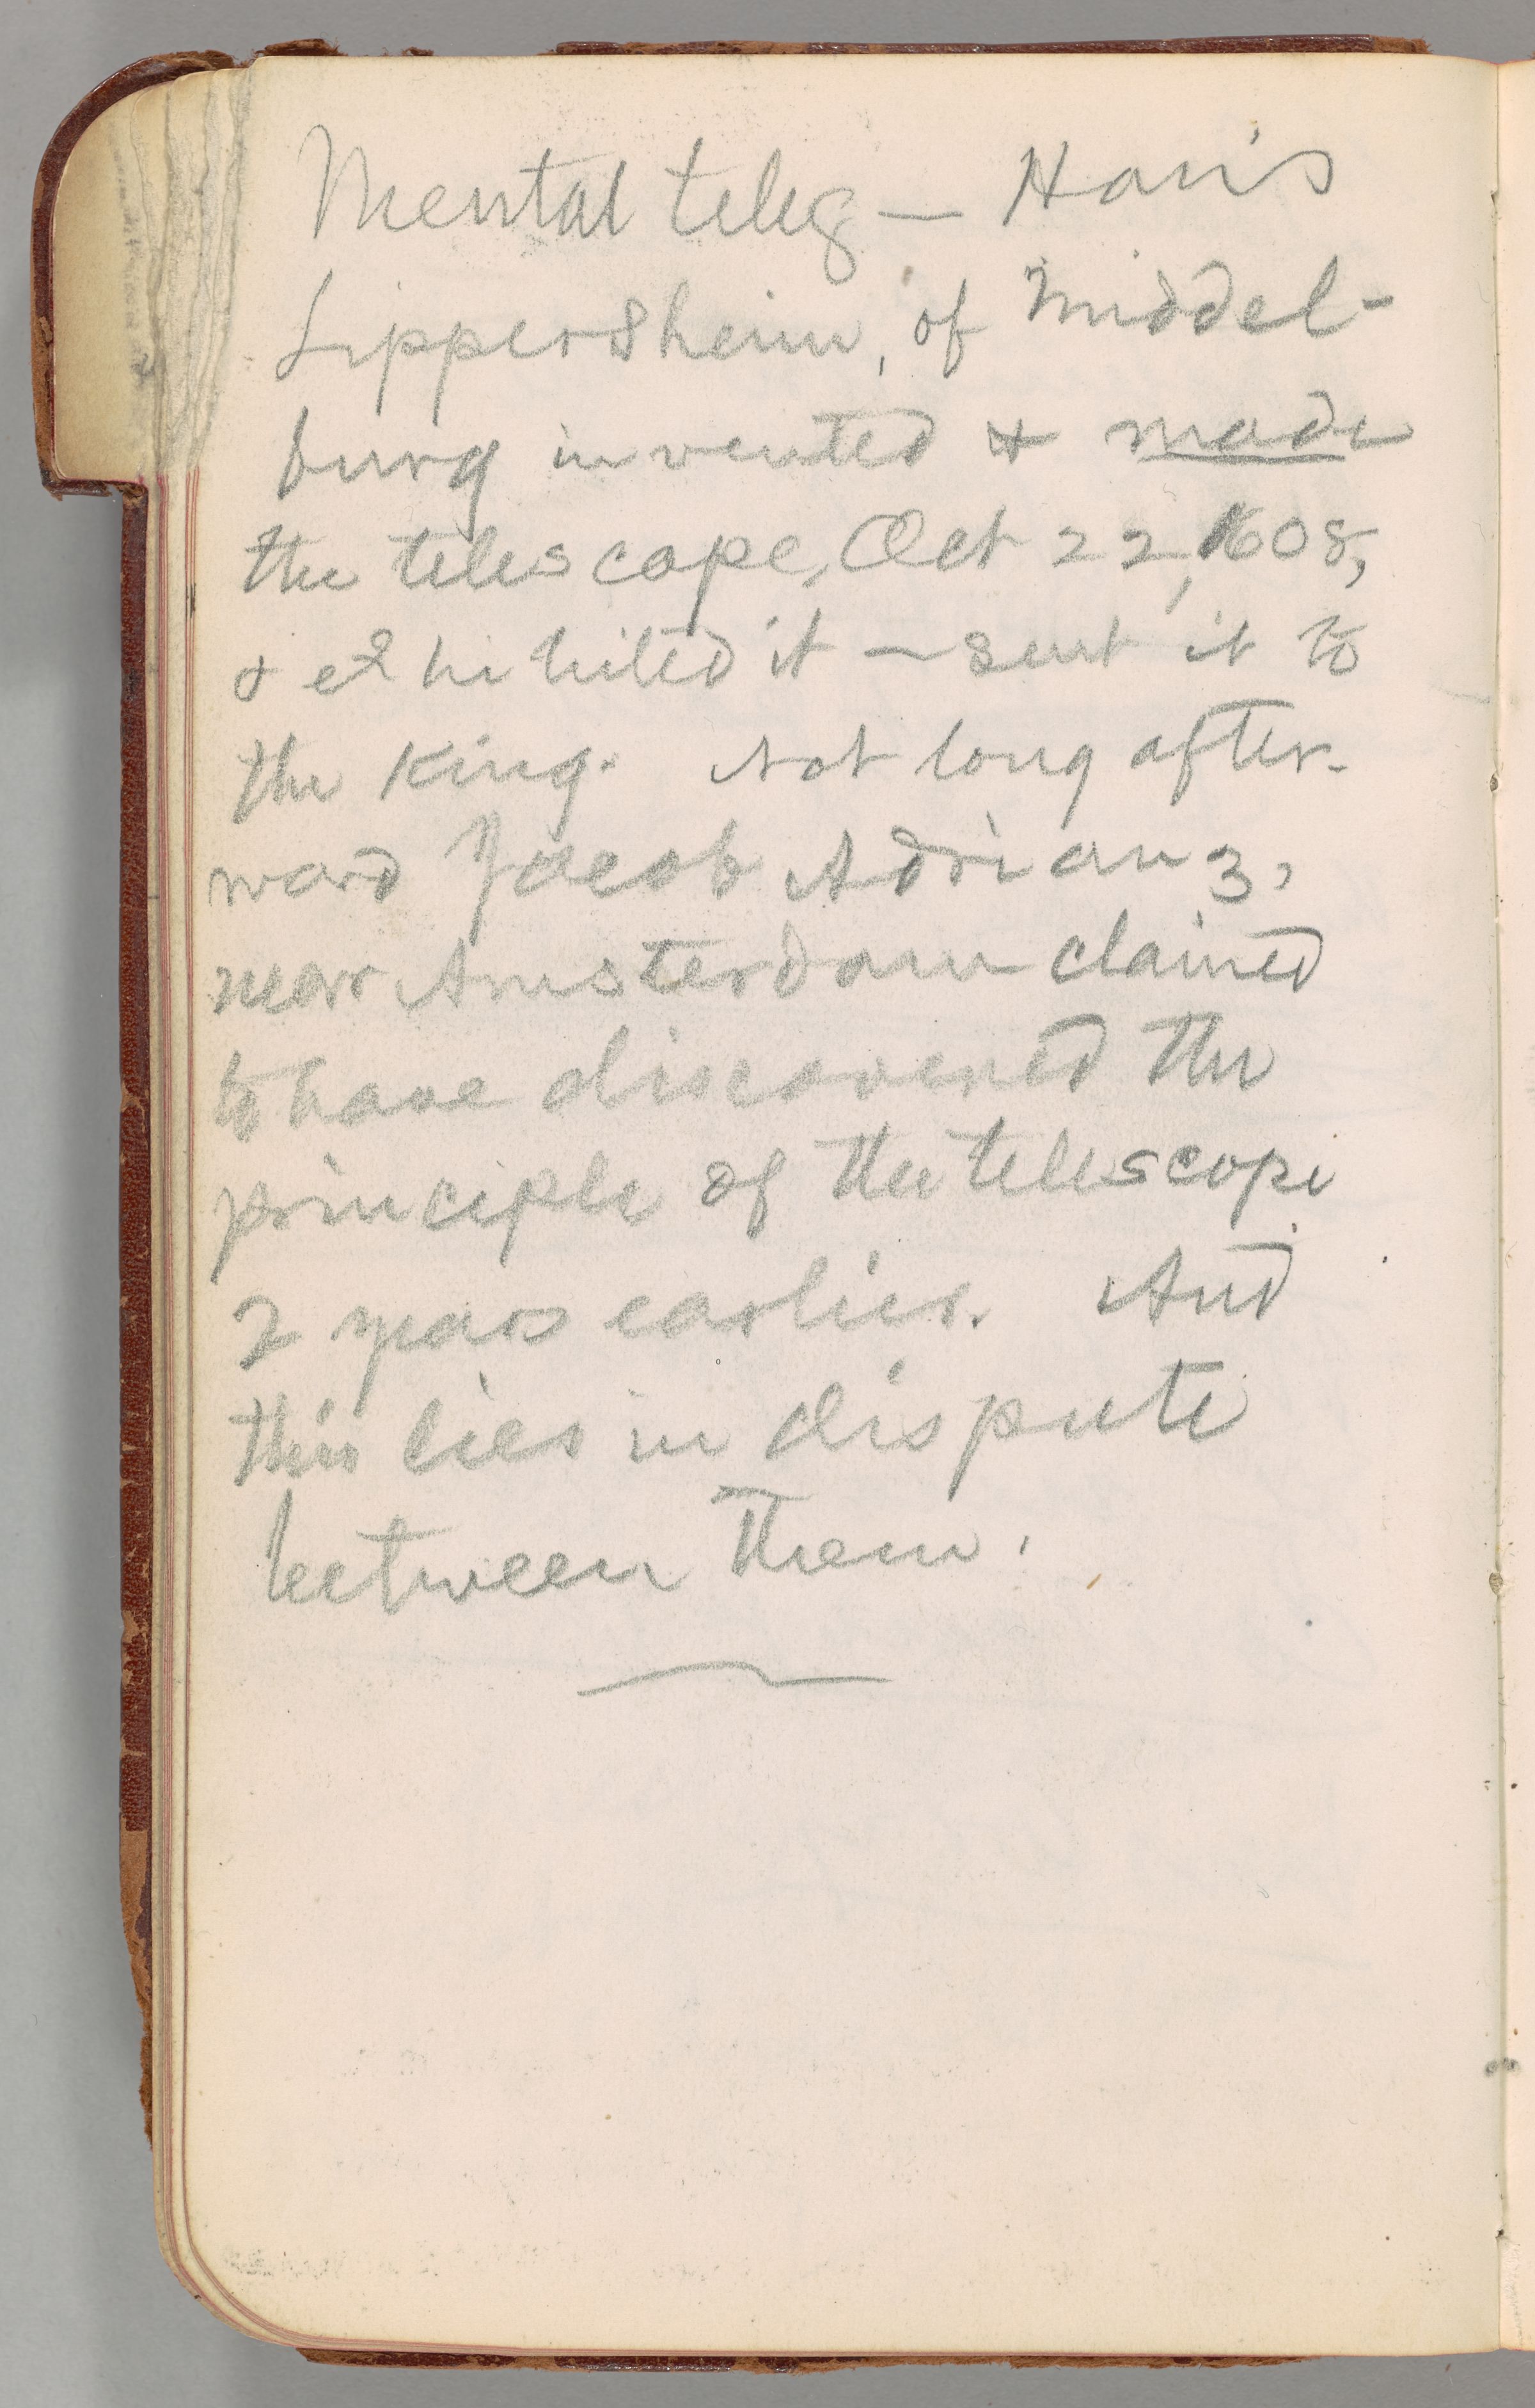 Mental teleg — Hans
Lippersheim, of Middel-
burg invented & made
the telescope, Oct 22, 1608,
& exhibited it — sent it to
the King. Not long after-
ward Jacob Adrianz,
near Amsterdam claimed
to have discovered the
principle of the telescope
2 years earlier. And
this lies in dispute
between them.